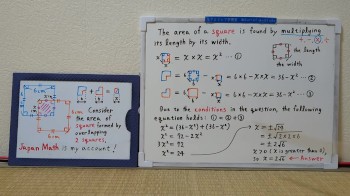 6cm
6cm
Consider
the area of
square formed by
overlapping
2 squares,
Japan Math is my account!
The area of a square is found by multiplying
its length by its width.
the length
the width
= x × x = x² … ①
= 6×6 - x×x = 36 - x² … ②
= 6×6 - x×x = 36 - x² … ③
Due to the conditions in the question, the following
equation holds: ① = ② + ③
x² = (36-x²) + (36-x²)
x² = 72 - 2x²
3x² = 72
x² = 24
x = ±√24
= ±√2×2×6
= ±2√6
x > 0 (x is greater than 0),
so x = 2√6 ← Answer